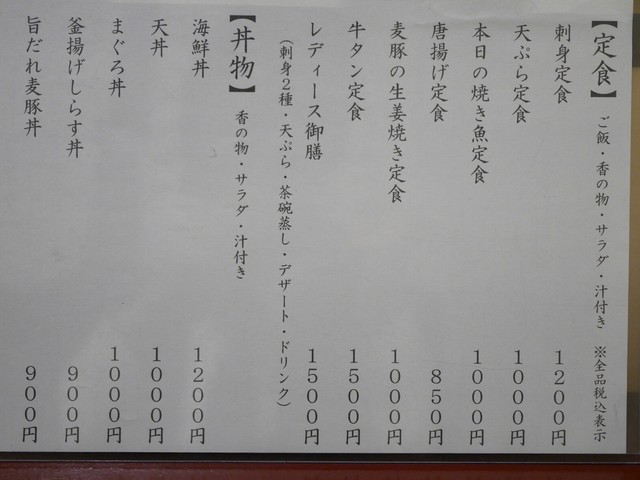 【定食】 ご飯・香の物・サラダ・汁付き ※全品税込表示
刺身定食 1200円
天ぷら定食 1000円
本日の焼き魚定食 1000円
唐揚げ定食 850円
麦豚の生姜焼き定食 1000円
牛タン定食 1500円
レディース御膳 1500円
(刺身2種・天ぷら・茶碗蒸し・デザート・ドリンク)
【丼物】 香の物・サラダ・汁付き
海鮮丼 1200円
天丼 1000円
まぐろ丼 1000円
釜揚げしらす丼 900円
旨だれ麦豚丼 900円